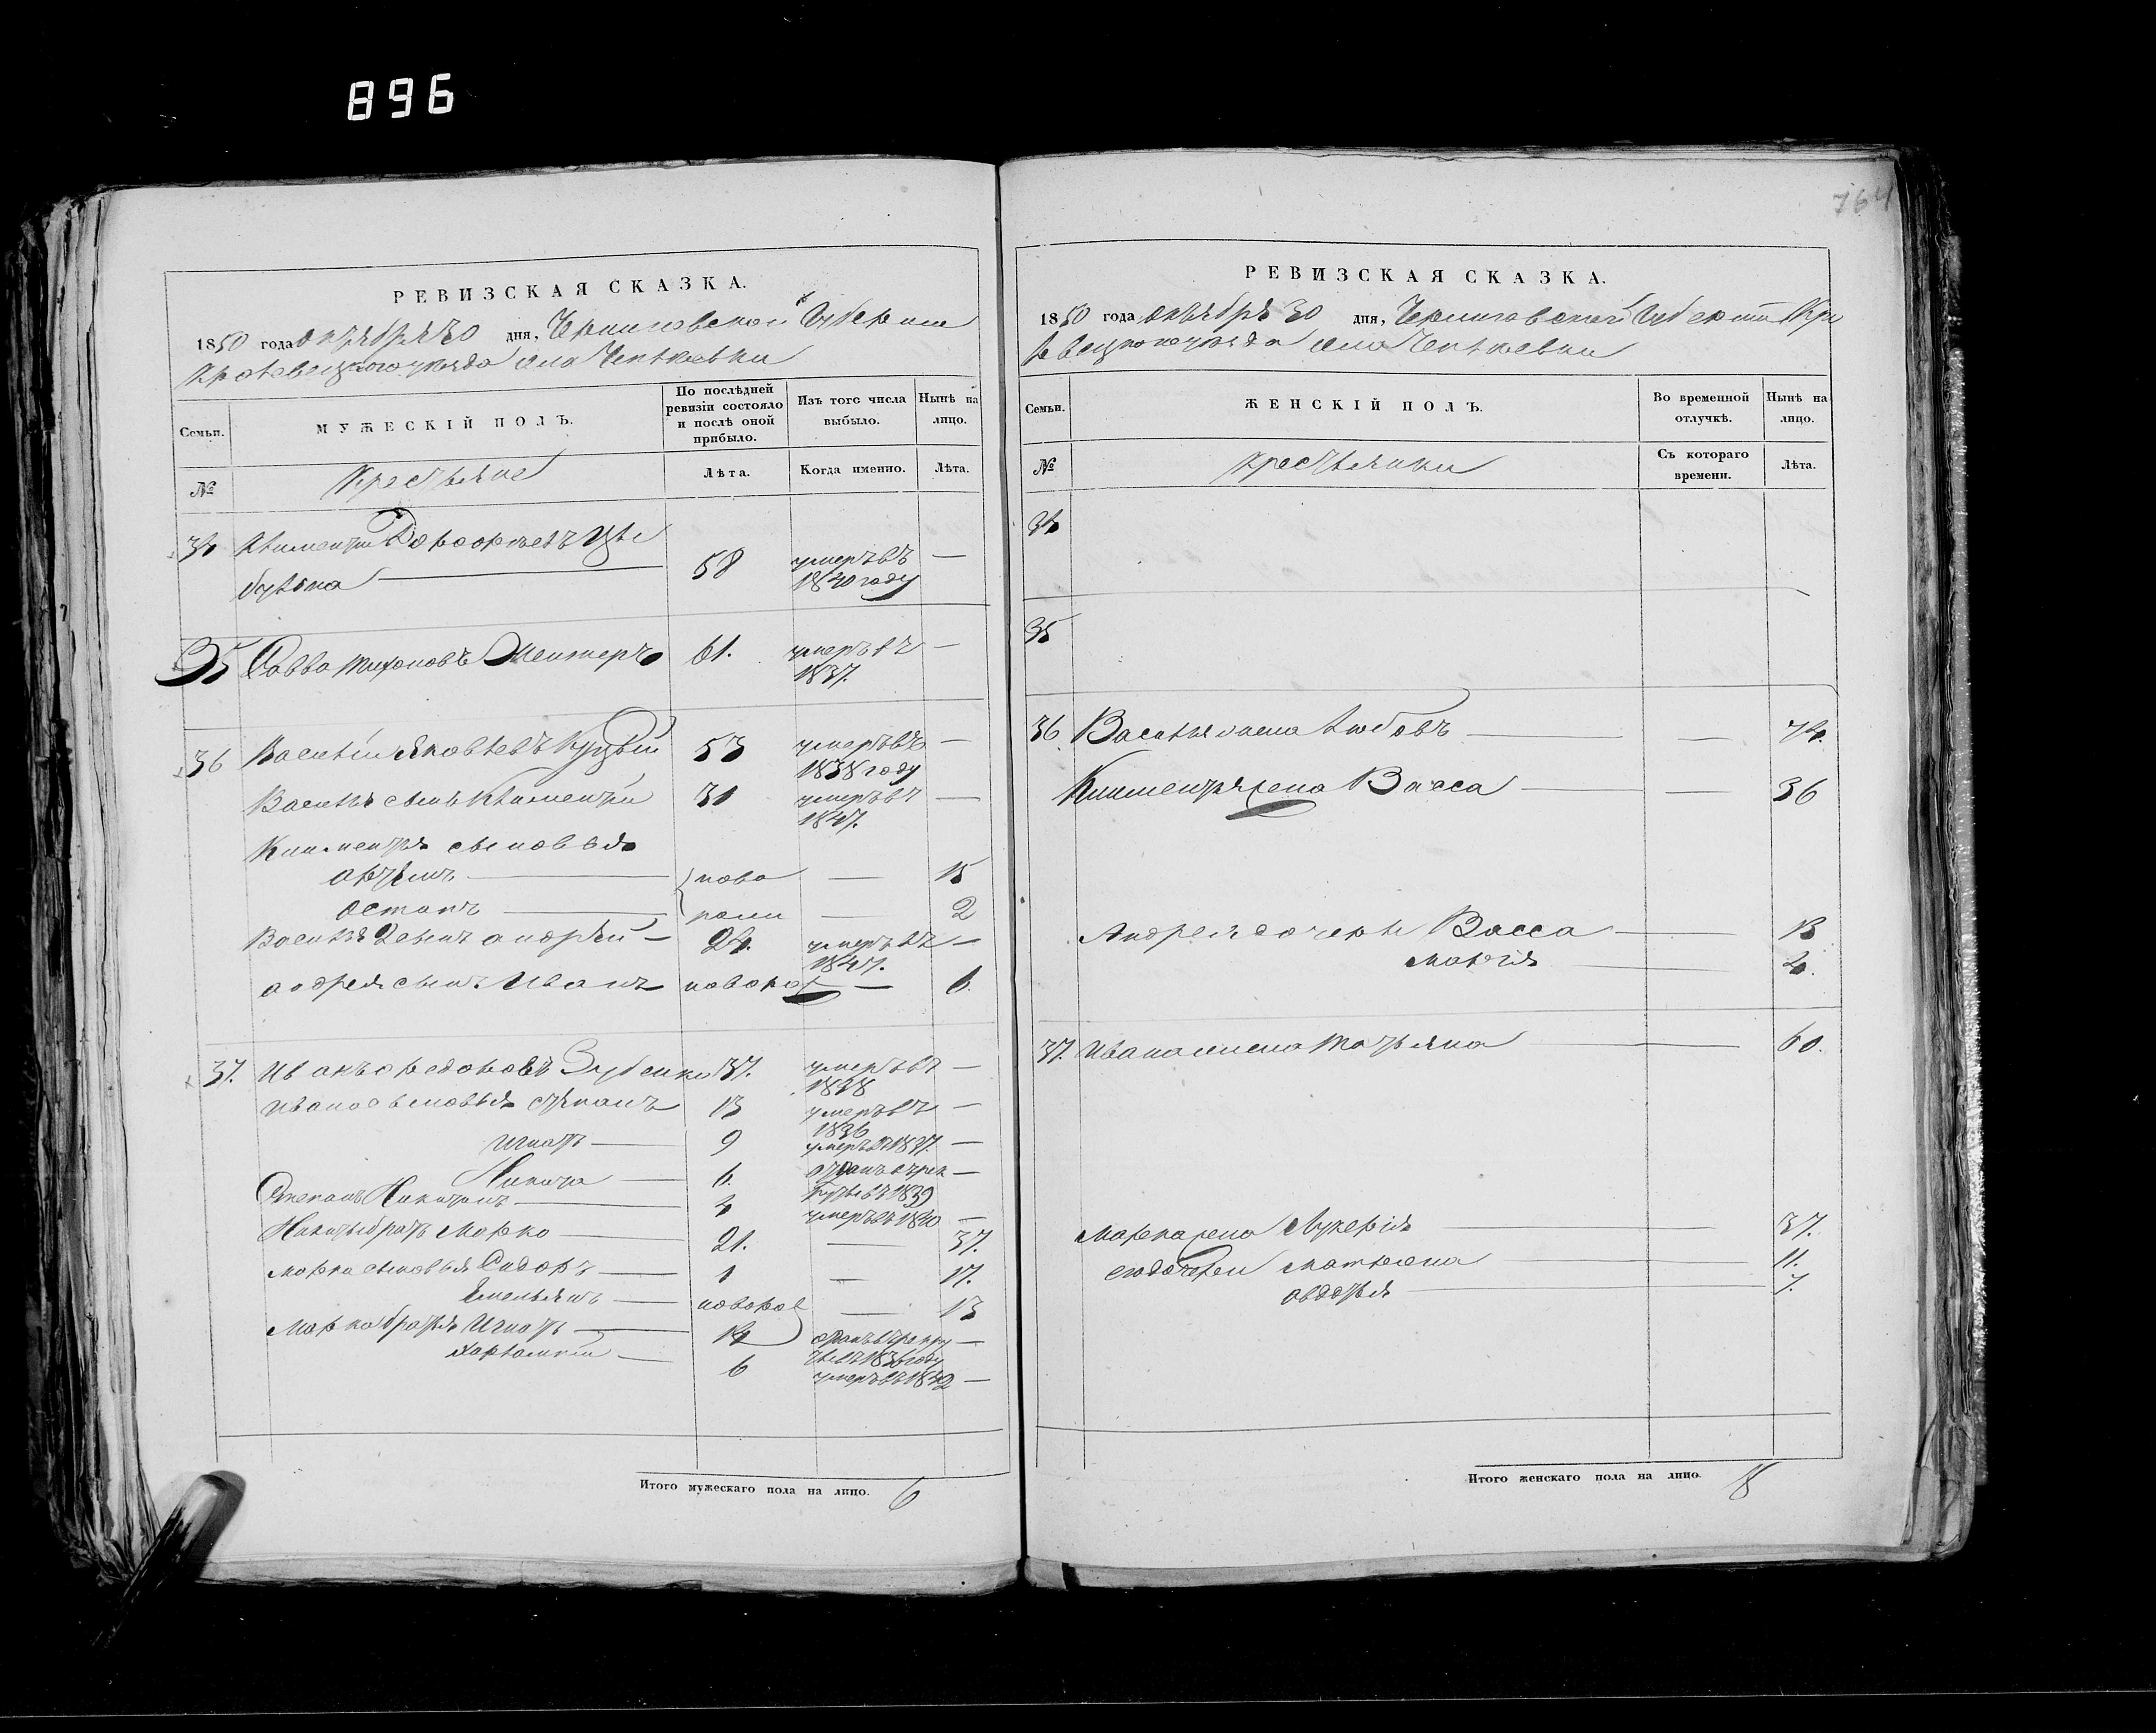 896
764
РЕВИЗСКАЯ СКАЗКА.
1850 года октября 30 дня, Черниговской Губернии
Кролевецкого уезда села
МУЖЕСКІЙ ПОЛЪ.
Семьи.
По послѣдней ревизіи состояло и послѣ оной прибыло.
Изъ того числа выбыло.
Нынѣ на лицо.
№
Крестьяне
Лѣта.
Когда именно.
Лѣта.
34 Климентий Дорофеевъ
58 умеръ въ —
1840 году
35 Савва Тихоновъ 61. умеръ въ —
1837.
36 Василий Яковлевъ Куцый 53 умеръ въ —
1838 году
Василия сынъ Климентий 31 умеръ въ —
1847.
Климентия сыновья
Артемъ — ново — 15
Остапъ — рожден — 2
Василия 2 сынъ андрей — 24. умеръ въ —
1847.
андрея сынъ Иванъ новорож — 6.
37. Иванъ Федоровъ Зубенко 37. умеръ въ —
1838
Ивана сыновья 13 умеръ въ —
1836
Игнатъ — 9 умеръ 1837. —
Никита — 6. отданъ в рек —
руты въ 1839
Степанъ Никитинъ — 4 умеръ въ 1840 —
Никиты братъ Марко — 21. — 37.
Марка сыновья Сидоръ — 1 — 17.
Емельянъ — новорож — 13
Марка братья Игнатъ — 14 отданъ в рекру —
ты въ 1836 году
Харлампий — 6 умеръ въ 1842 —
Итого мужескаго пола на лицо. 6
РЕВИЗСКАЯ СКАЗКА.
1850 года октября 30 дня, Черниговской Губернии Кро
левецкого уезда села
Семьи.
ЖЕНСКІЙ ПОЛЪ.
Во временной отлучкѣ.
Нынѣ на лицо.
№
Крестьянки
Съ котораго времени.
Лѣта.
34
35
36 Василия жена Любовь — — 74.
Климентия жена Васса — — 36
Андрея дочери Васса — 13
Мария — 4.
37. Ивана жена Татьяна — 60.
Марка жена Лукерія — 37.
его дочери Матрена — 11.
Авдотья — 7.
Итого женскаго пола на лицо. 8